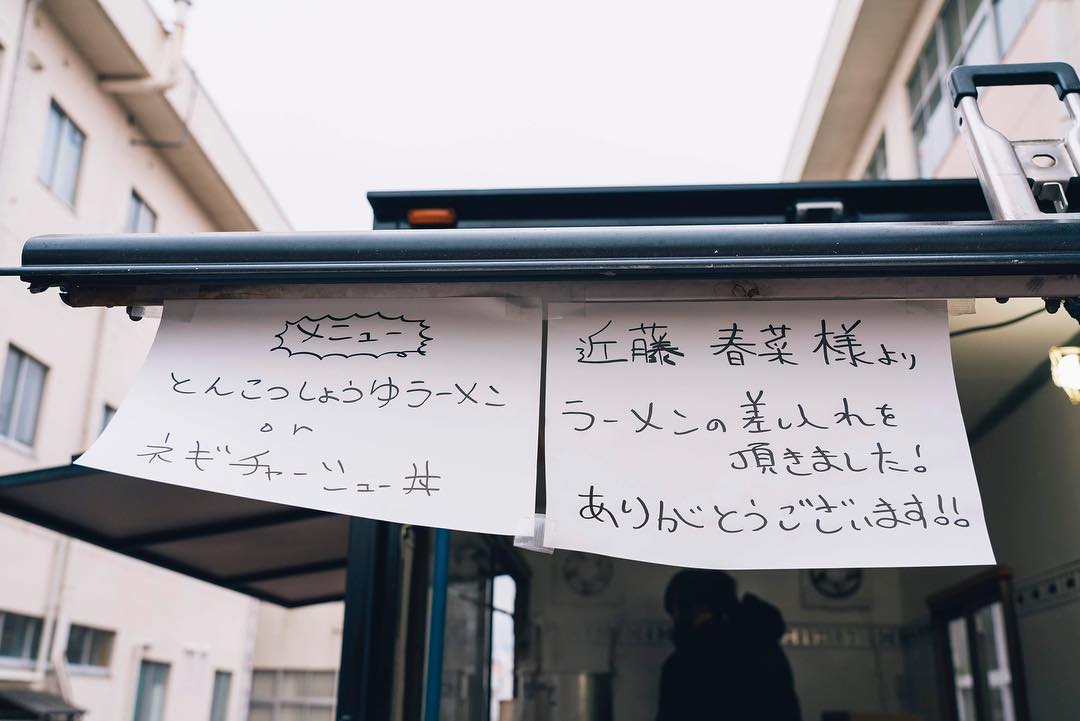 メニュー
とんこつしょうゆラーメン
or
ネギチャージュー丼
近藤 春菜 様より
ラーメンの差し入れを
頂きました!
ありがとうございます!!